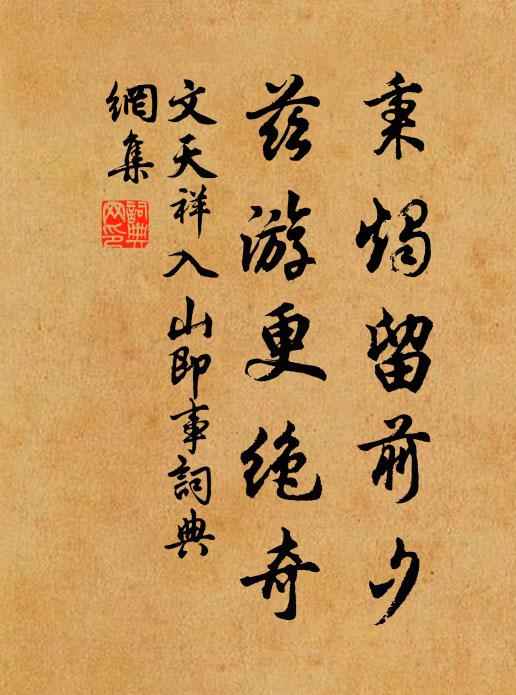 秉燭留前夕
茲游更絕奇
文天祥入山即事詞典
網集
詞典
网印